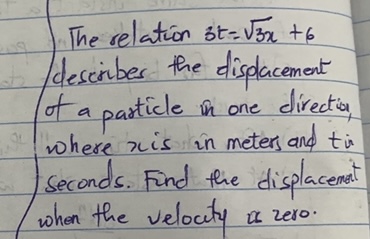 The relation 3t = √3x + 6
describes the displacement
of a particle in one direction,
where x is in meters and t in
seconds. Find the displacement
when the velocity is zero.